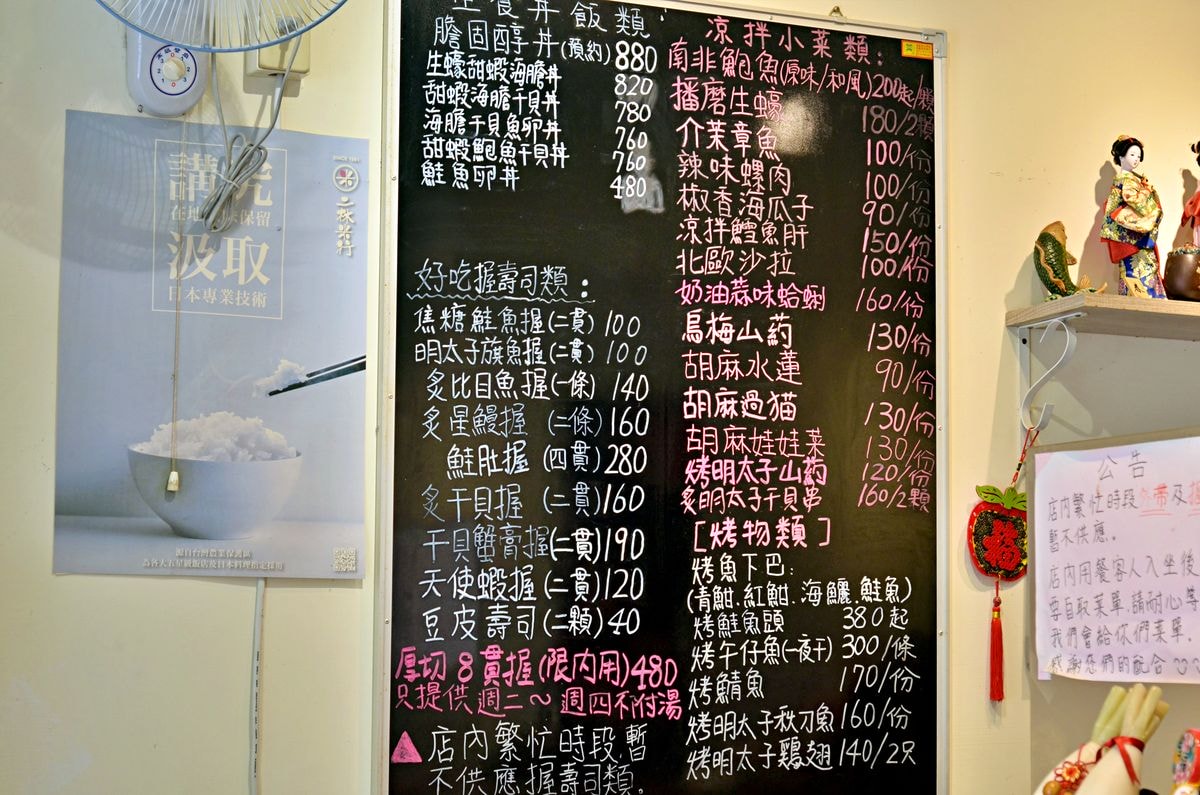 食丼飯類:
膽固醇丼(預約)880
生蠔甜蝦海膽丼 820
甜蝦海膽干貝丼 780
海膽干貝魚卵丼 760
甜蝦鮑魚干貝丼 760
鮭魚卵丼 480
好吃握壽司類:
焦糖鮭魚握(二貫)100
明太子旗魚握(二貫)100
炙比目魚握(一條)140
炙星鰻握(二條)160
鮭肚握(四貫)280
炙干貝握(二貫)160
干貝蟹膏握(二貫)190
天使蝦握(二貫)120
豆皮壽司(二顆)40
厚切8貫握(限內用)480
只提供週二~週四不附湯
店內繁忙時段,暫
不供應握壽司類。
涼拌小菜類:
南非鮑魚(原味/和風)200起/顆
播磨生蠔 180/2顆
介茉章魚 100/份
辣味螺肉 100/份
椒香海瓜子 90/份
涼拌鱈魚肝 150/份
北歐沙拉 100/份
奶油蒜味蛤蜊 160/份
烏梅山药 130/份
胡麻水蓮 90/份
胡麻過猫 130/份
胡麻娃娃菜 130/份
烤明太子山药 120/份
炙明太子干貝串 160/2顆
[烤物類]
烤魚下巴:
(青魽.紅魽.海鱺.鮭魚)
烤鮭魚頭 380起
烤午仔魚(一夜干) 300/條
烤鯖魚 170/份
烤明太子秋刀魚 160/份
烤明太子鷄翅 140/2只
SINCE 1951
講究
保留
汲取
日本專業技術
源自台灣農業保護區
為各大五星級飯店及日本料理指定採用
福
公告
店內繁忙時段外帶及
暫不供應。
店內用餐客人入坐後
要自取菜單,請耐心等
我們會給你們菜單,
感謝您們的配合